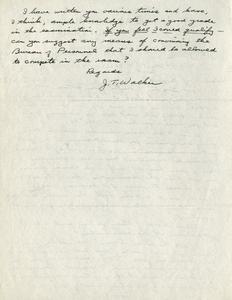 I have written you various times and have,
I think, ample knowledge to get a good grade
in the examination. If you feel I could qualify —
can you suggest any means of convincing the
Bureau of Personnel that I should be allowed
to compete in the exam?
Regards
J. T. Walker